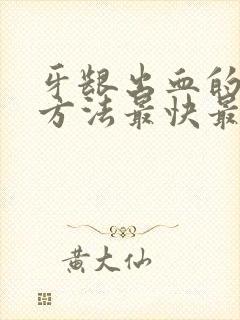 牙龈出血的
方法最快最
黄大仙